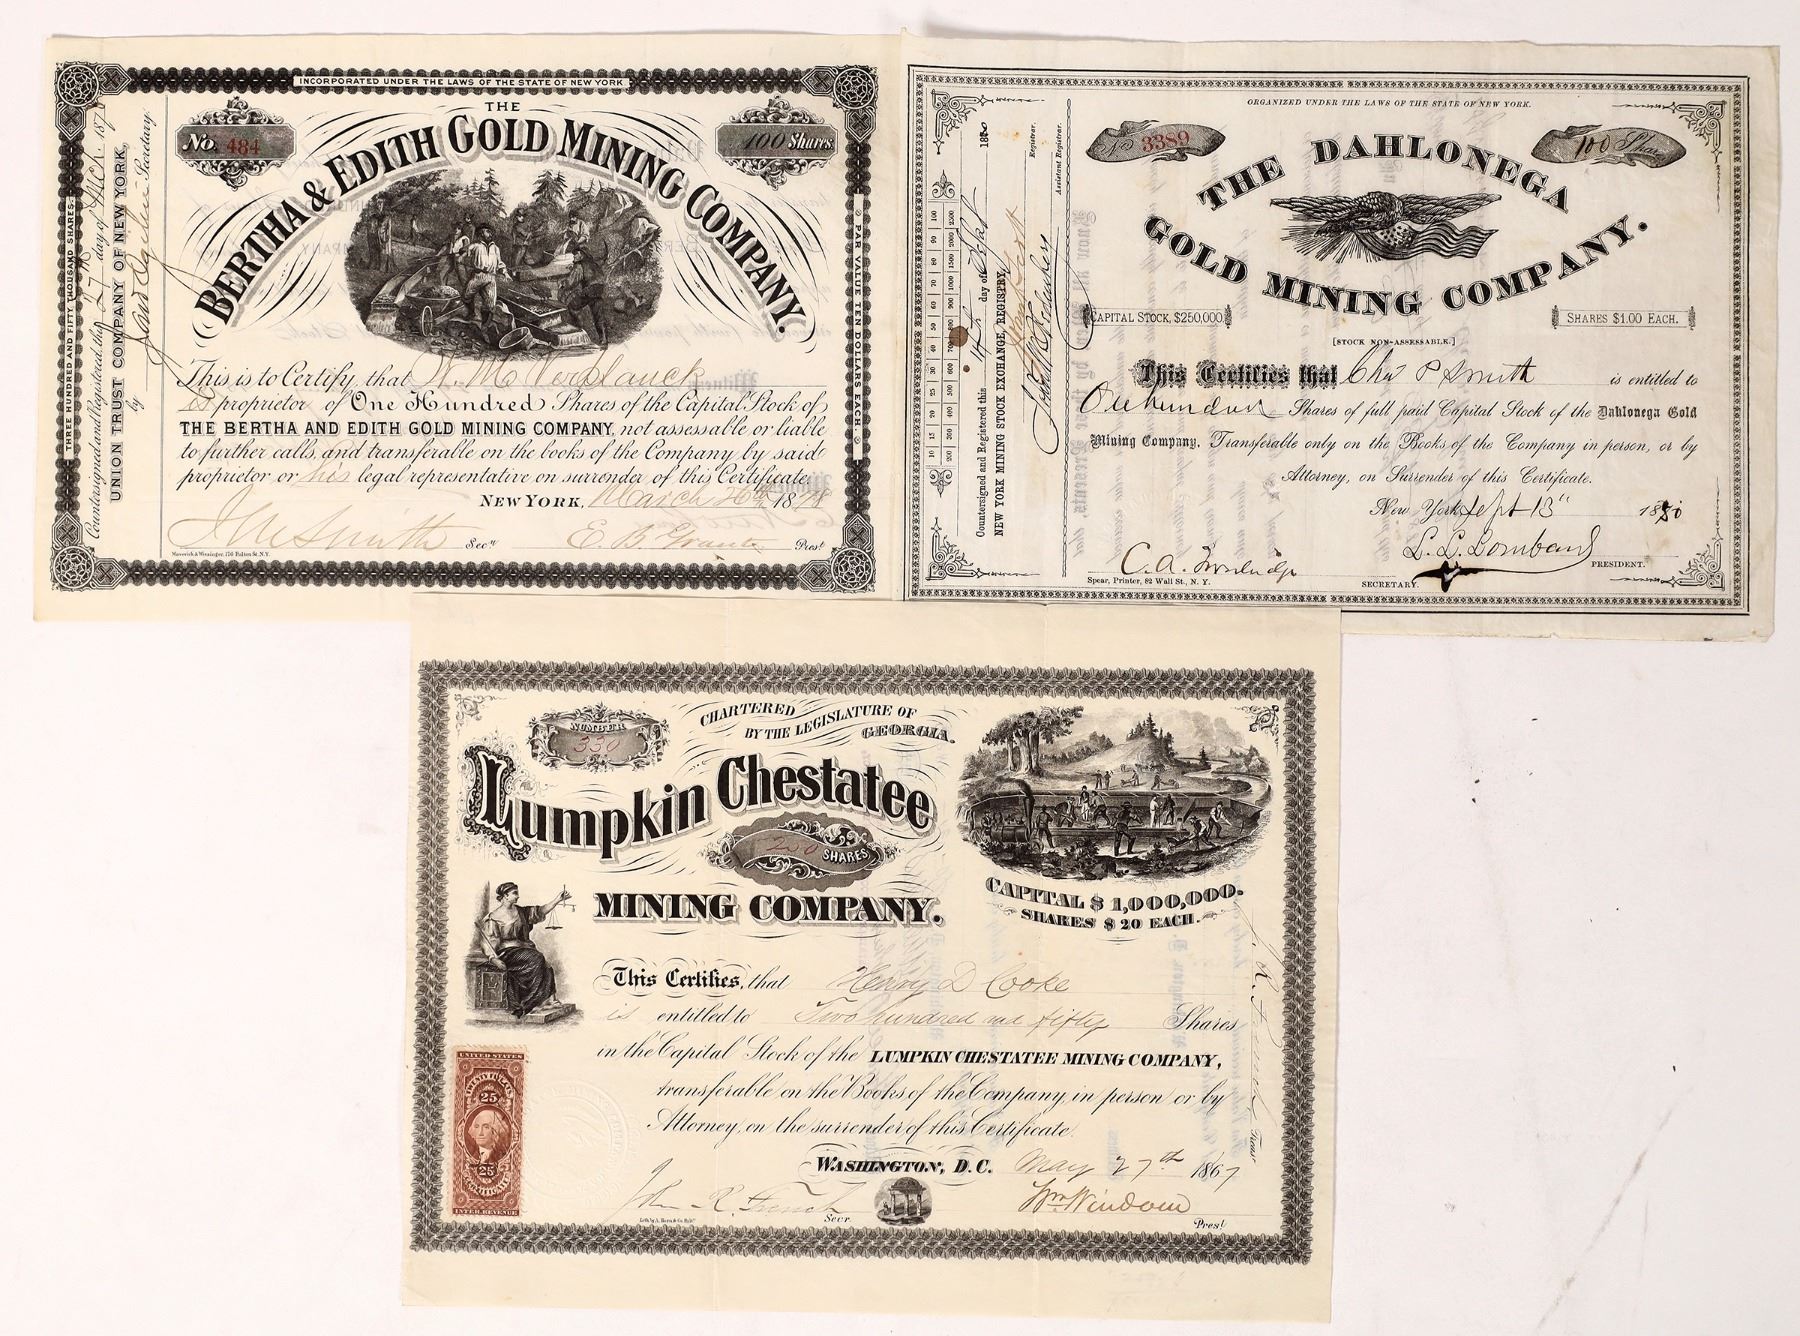 INCORPORATED UNDER THE LAWS OF THE STATE OF NEW YORK
No. 484
100 Shares
THE
BERTHA & EDITH GOLD MINING COMPANY.
THREE HUNDRED AND FIFTY THOUSAND SHARES.
Countersigned and Registered this 27th day of Mch. 187
UNION TRUST COMPANY OF NEW YORK,
by
Secretary.
PAR VALUE TEN DOLLARS EACH.
This is to Certify, that W. M. Verplanck
is proprietor of One Hundred Shares of the Capital Stock of
THE BERTHA AND EDITH GOLD MINING COMPANY, not assessable or liable
to further calls, and transferable on the books of the Company by said
proprietor or his legal representative on surrender of this Certificate.
NEW YORK, March 26th 1878
J. M. Smith Sec'y E. B. Grant Prest
Maverick & Wissinger, 176 Fulton St. N.Y.
ORGANIZED UNDER THE LAWS OF THE STATE OF NEW YORK.
No 3389
100 Shares
THE DAHLONEGA
GOLD MINING COMPANY.
CAPITAL STOCK, $250,000
SHARES $1.00 EACH.
[STOCK NON-ASSESSABLE.]
This Certifies that Chas P Smith is entitled to
One hundred Shares of full paid Capital Stock of the Dahlonega Gold
Mining Company. Transferable only on the Books of the Company in person, or by
Attorney, on Surrender of this Certificate.
New York Sept 13" 1880
C. A.
SECRETARY.
L. L. Lombard
PRESIDENT.
Spear, Printer, 82 Wall St., N. Y.
Countersigned and Registered this day of Sept 1880
NEW YORK MINING STOCK EXCHANGE, REGISTRY,
Registrar.
Assistant Registrar.
NUMBER
330
CHARTERED
BY THE LEGISLATURE OF
GEORGIA.
Lumpkin Chestatee
250 SHARES
MINING COMPANY.
CAPITAL $1,000,000.
SHARES $20 EACH.
This Certifies, that Henry D Cooke
is entitled to Two hundred and fifty Shares
in the Capital Stock of the LUMPKIN CHESTATEE MINING COMPANY,
transferable on the Books of the Company, in person or by
Attorney, on the surrender of this Certificate.
WASHINGTON, D.C. May 27th 1867
John R. French Secr.
Wm Windom Prest
Treasr
UNITED STATES
25
25
CERTIFICATE
INTER. REVENUE